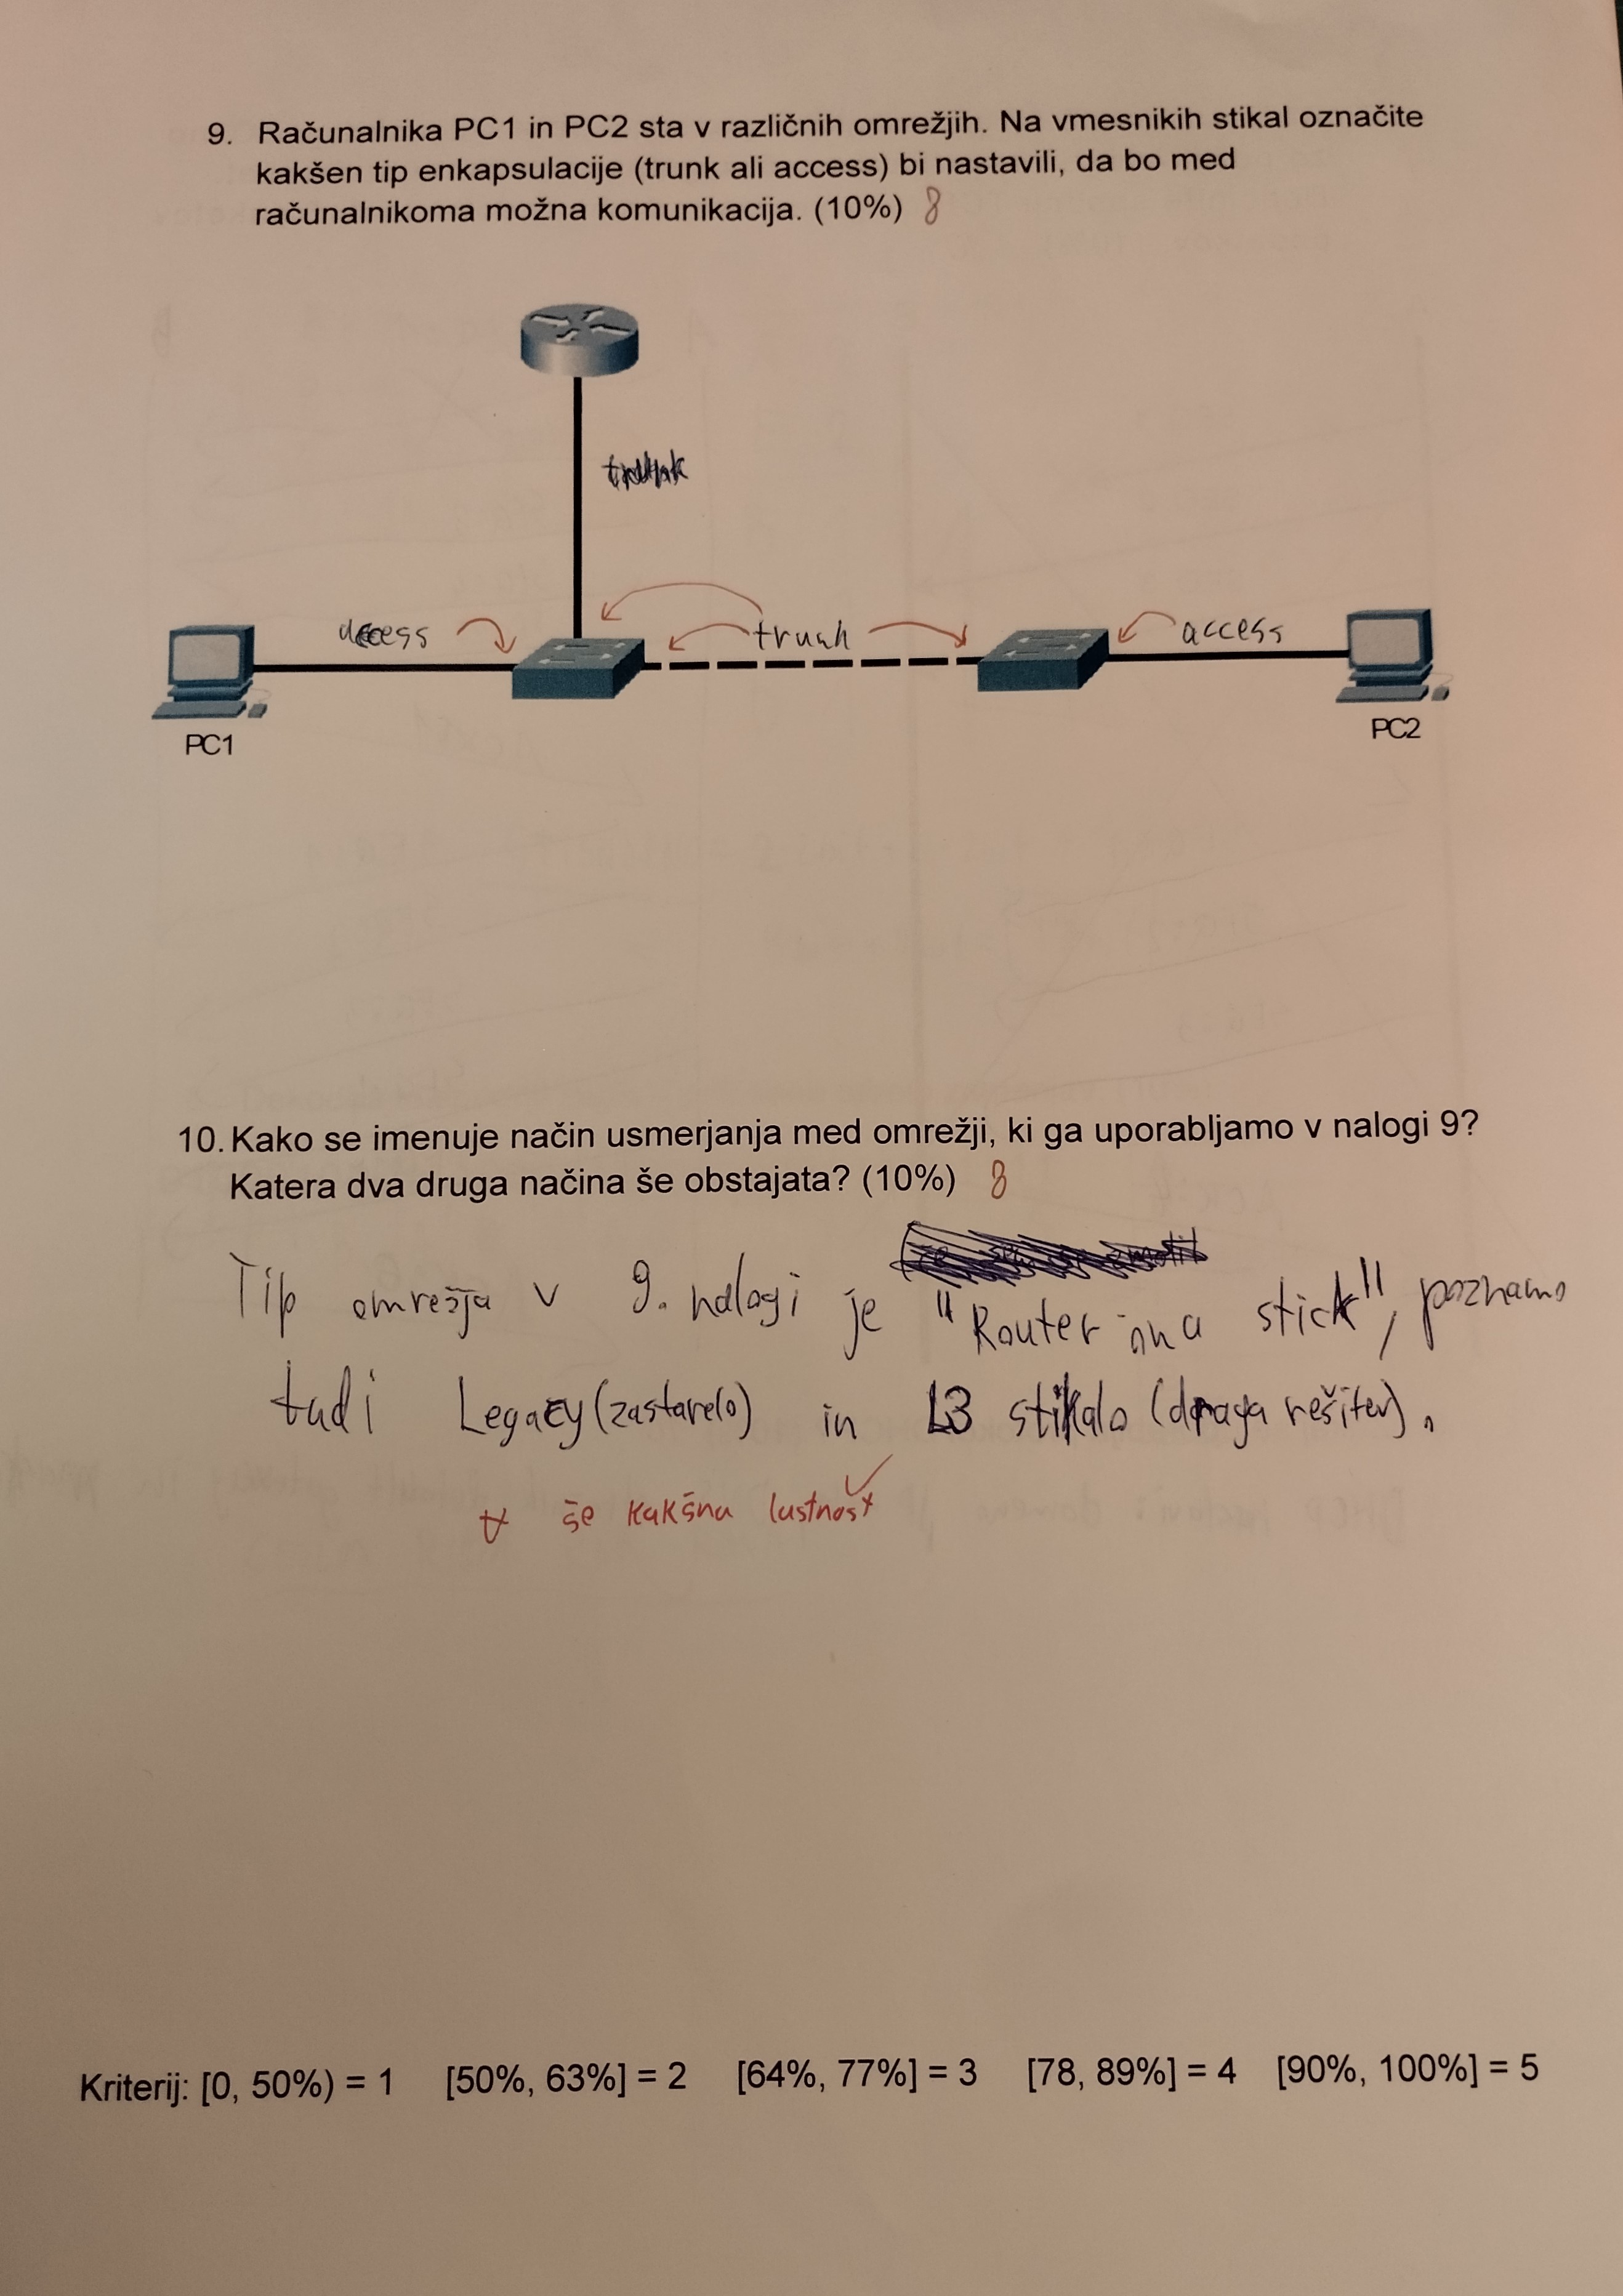 9. Računalnika PC1 in PC2 sta v različnih omrežjih. Na vmesnikih stikal označite
kakšen tip enkapsulacije (trunk ali access) bi nastavili, da bo med
računalnikoma možna komunikacija. (10%) 8
trunk
access trunk access
PC1 PC2
10. Kako se imenuje način usmerjanja med omrežji, ki ga uporabljamo v nalogi 9?
Katera dva druga načina še obstajata? (10%) 8
Tip omrežja v 9. nalogi je "Router on a stick", poznamo
tudi Legacy (zastarelo) in L3 stikalo (draga rešitev).
še kakšna lastnost
Kriterij: [0, 50%) = 1 [50%, 63%] = 2 [64%, 77%] = 3 [78, 89%] = 4 [90%, 100%] = 5